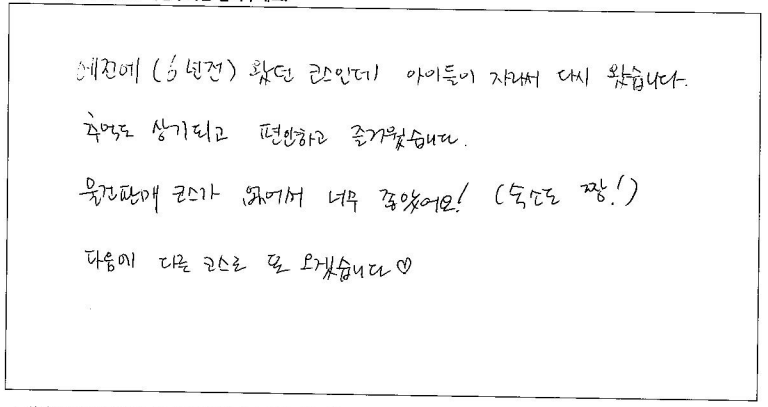 예전에 (6년전) 왔던 코스인데 아이들이 자라서 다시 왔습니다.
추억도 상기되고 편안하고 즐거웠습니다.
물건판매 코스가 없어서 너무 좋았어요! (숙소도 짱!)
다음에 다른 코스로 또 오겠습니다♡